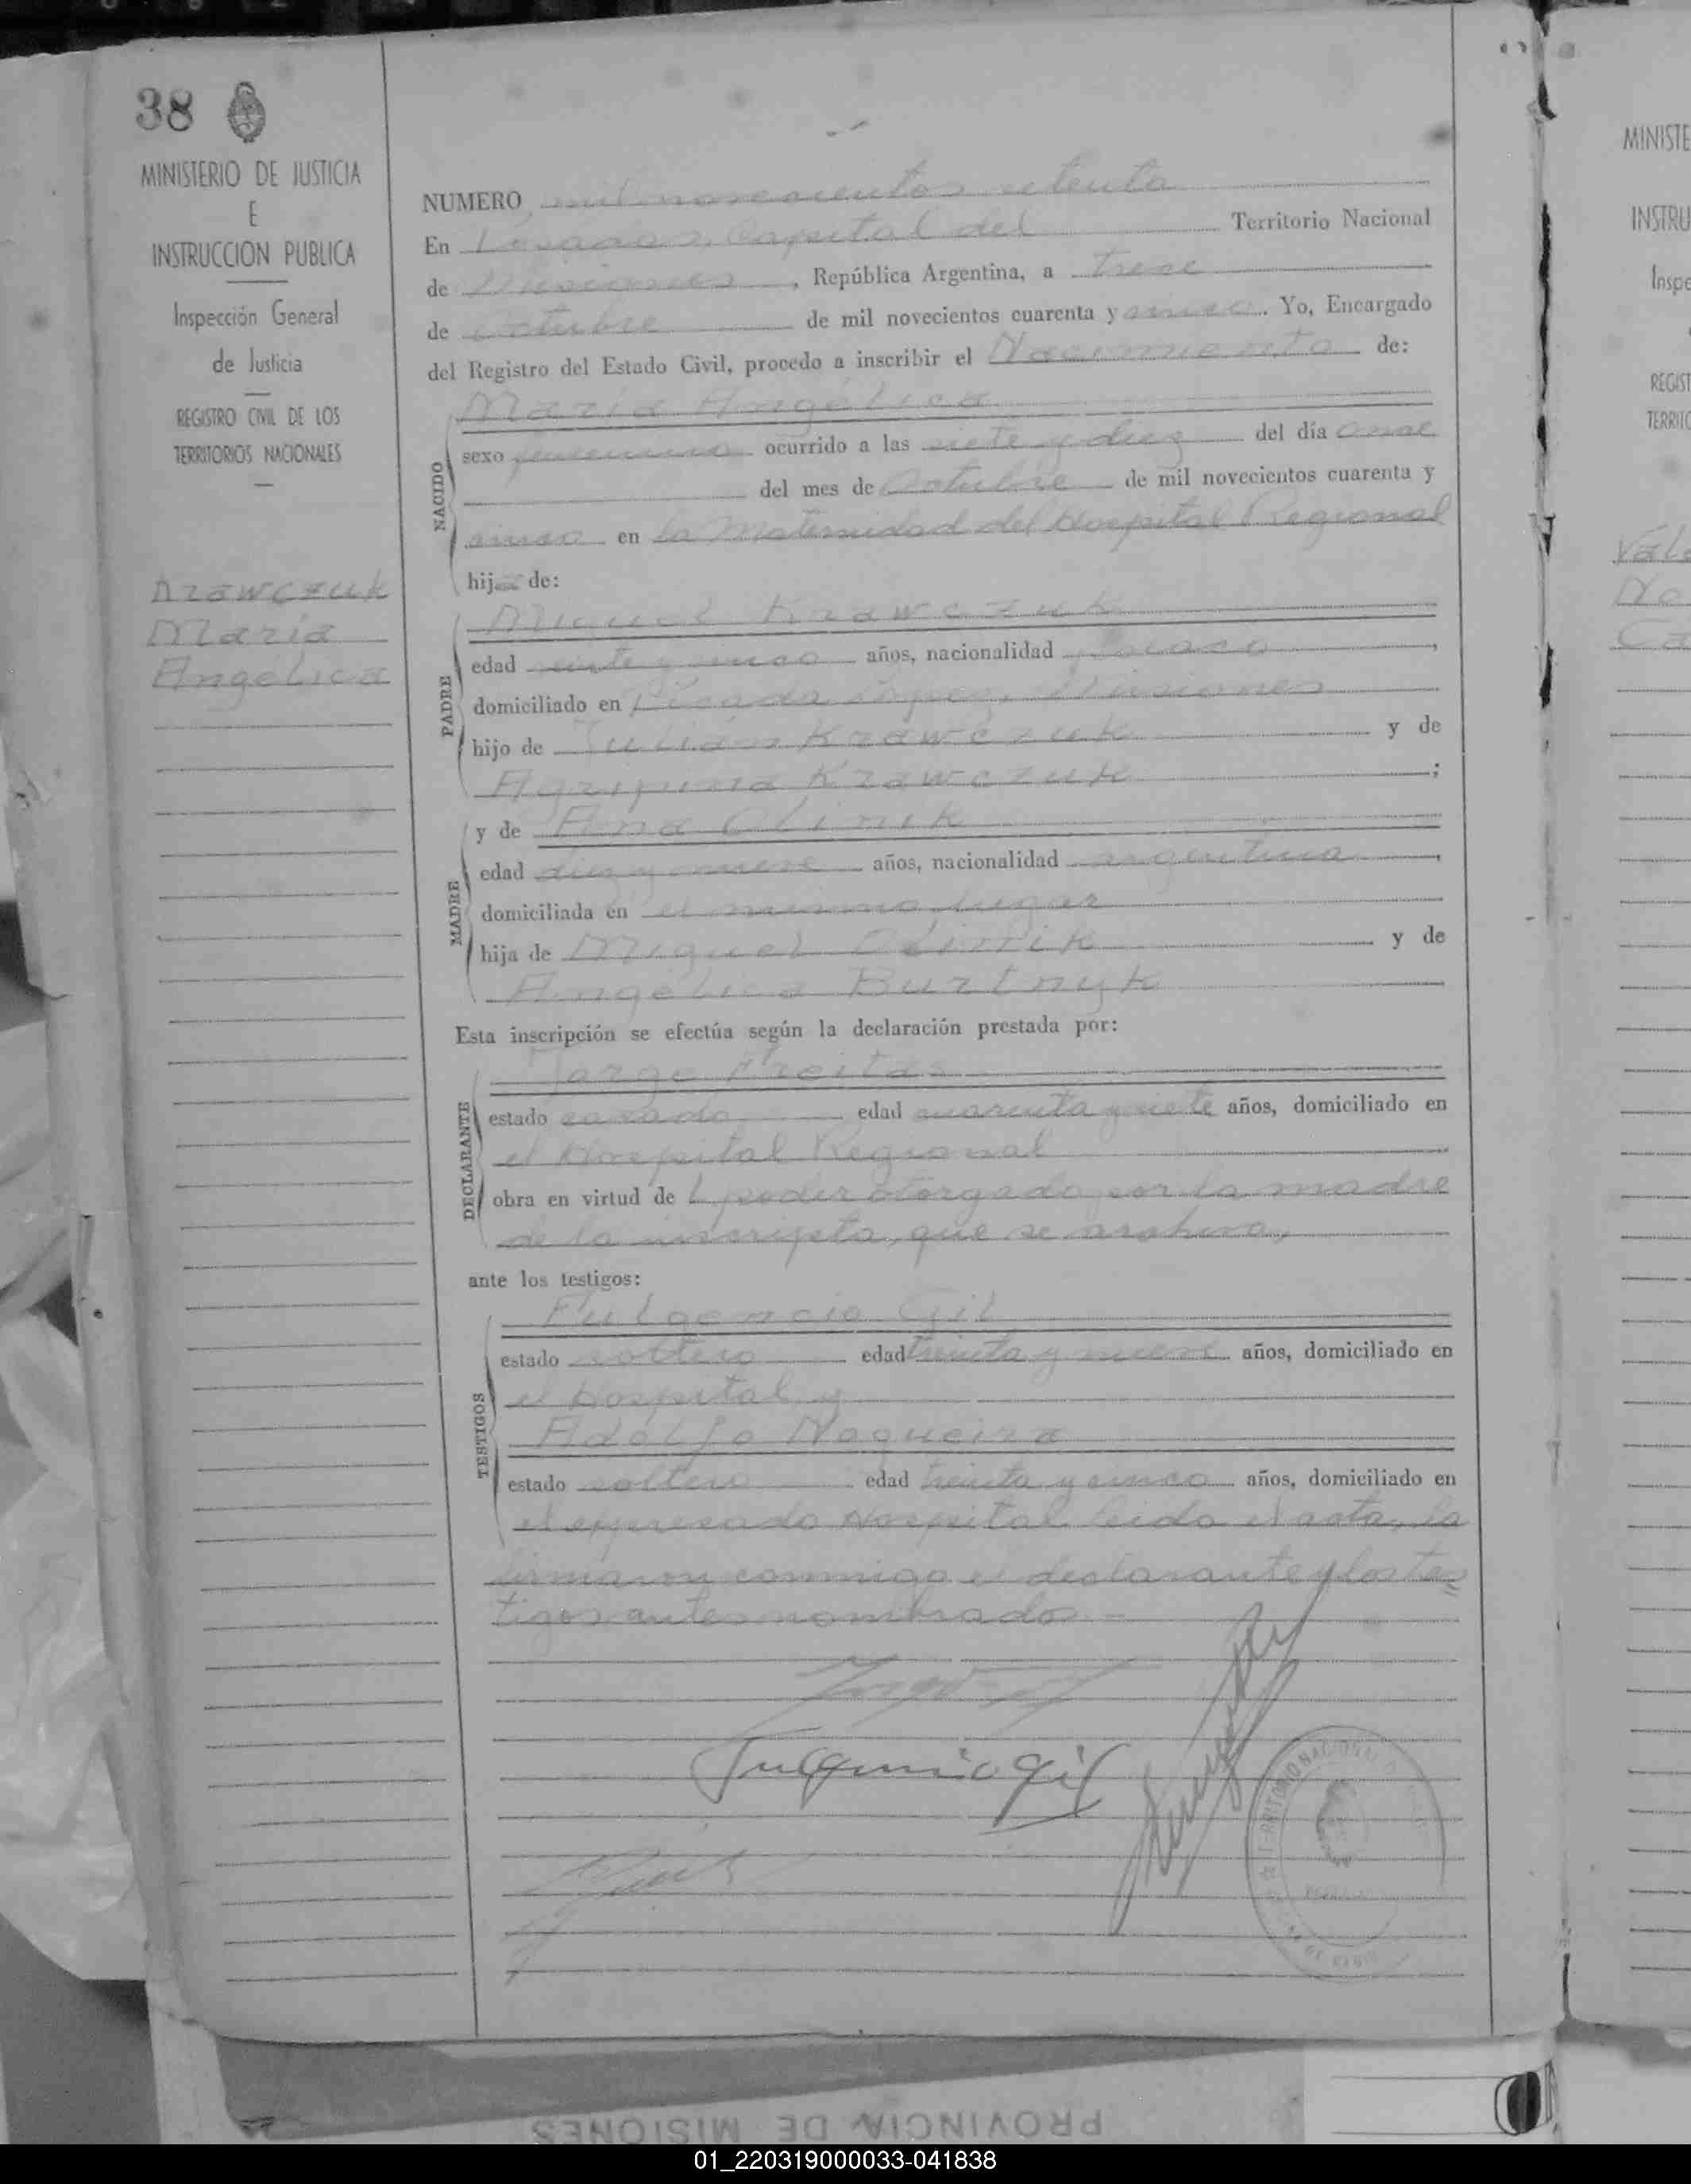 38
MINISTERIO DE JUSTICIA
E
INSTRUCCION PUBLICA
Inspección General
de Justicia
REGISTRO CIVIL DE LOS
TERRITORIOS NACIONALES
Krawczuk
María
Angélica
NUMERO mil novecientos setenta
En Posadas, Capital del Territorio Nacional
de Misiones, República Argentina, a trece
de octubre de mil novecientos cuarenta y cinco. Yo, Encargado
del Registro del Estado Civil, procedo a inscribir el Nacimiento de:
María Angélica
NACIDO
sexo femenino ocurrido a las siete y diez del día once
del mes de Octubre de mil novecientos cuarenta y
cinco en la Maternidad del Hospital Regional
hija de:
Miguel Krawczuk
PADRE
edad veinte y cinco años, nacionalidad polaco,
domiciliado en Picada López, Misiones
hijo de Julián Krawczuk y de
Agripina Krawczuk;
y de Ana Olinik
MADRE
edad diez y nueve años, nacionalidad argentina,
domiciliada en el mismo lugar
hija de Miguel Olinik y de
Angélica Burtnyk
Esta inscripción se efectúa según la declaración prestada por:
Jorge Freitas
DECLARANTE
estado casado edad cuarenta y siete años, domiciliado en
el Hospital Regional
obra en virtud de l poder otorgado por la madre
de la inscripta, que se archiva,
ante los testigos:
Fulgencio Gil
TESTIGOS
estado soltero edad treinta y nueve años, domiciliado en
el Hospital y
Adolfo Nogueira
estado soltero edad treinta y cinco años, domiciliado en
el expresado Hospital. leida el acta, la
firmaron conmigo el declarante y los tes=
tigos antes nombrados.-
Fulgencio Gil
TERRITORIO NACIONAL
MINISTE
INSTRU
Inspe
REGIST
TERRITO
PROVINCIA DE MISIONES
01_220319000033-041838